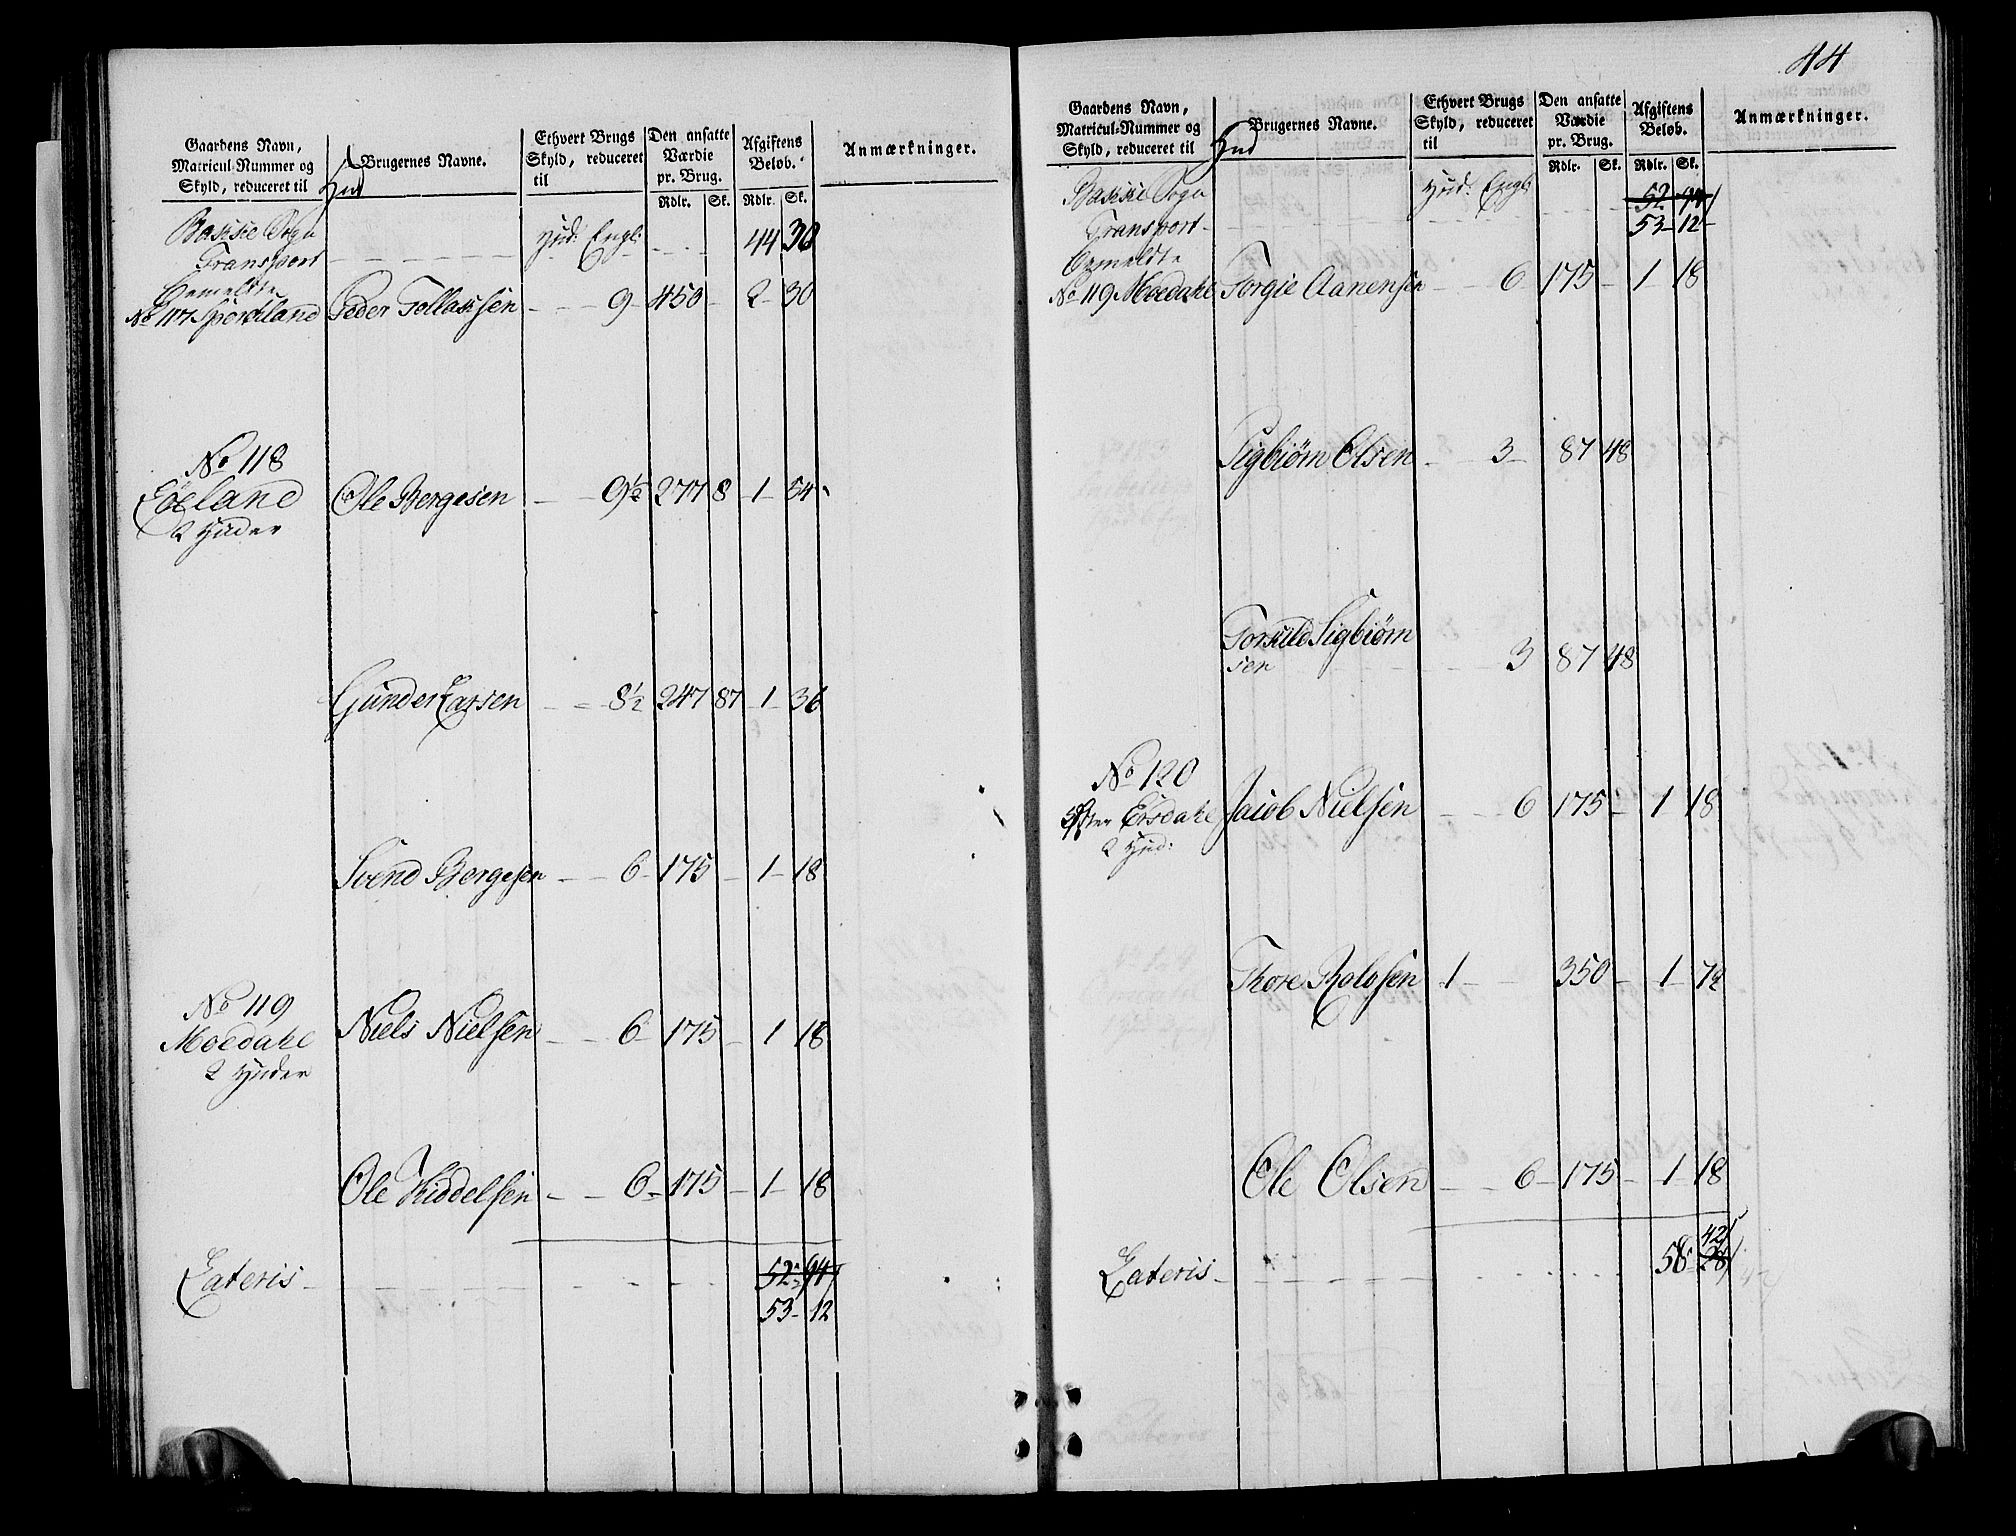 Gaardens Navn, Matricul-Nummer og Skyld, reduceret til Hud
Brugernes Navne.
Ethvert Brugs Skyld, reduceret til
Den ansatte Værdie pr. Brug.
Afgiftens Beløb.
Anmærkninger.
Rdlr. Sk. Rdlr. Sk.
Sogn Hud: Engl:
Transport - 44 30
bemeldte
No 117 Peder Tollaksen - - 9 - 450 - 2 - 30
No 118
Eoeland Ole Bergesen - - 9½ 277 8 1 - 54
2 Huder
Gunder Larsen - - 8½ 247 87 1 - 36
Svend Bergesen - - 6 - 175 - 1 - 18
No 119
Moedahl Niels Nielsen - - 6 - 175 - 1 18
2 Huder
Ole Kiddelsen - - 6 - 175 - 1 - 18
Lateris - 52 - 94
53 - 12
44
Gaardens Navn, Matricul-Nummer og Skyld, reduceret til Hud
Brugernes Navne.
Ethvert Brugs Skyld, reduceret til
Den ansatte Værdie pr. Brug.
Afgiftens Beløb.
Anmærkninger.
Rdlr. Sk. Rdlr. Sk.
Sogn Hud: Engl: 52 94
Transport - 53 - 12
bemeldte
No 119 Moedahl Torgie Aanensen - - 6 175 - 1 18
Sigbiørn Olsen - - 3 - 87 48
Torkild Sigbiørn
sen - - 3 87 48
No 120
Øster Eisdahl Jacob Nielsen - - 6 175 - 1 18
2 Hud:
Thore Rolofsen 1 - - 350 - 1 - 72
Ole Olsen - - 6 - 175 - 1 - 18
42
Lateris - 58 - 28